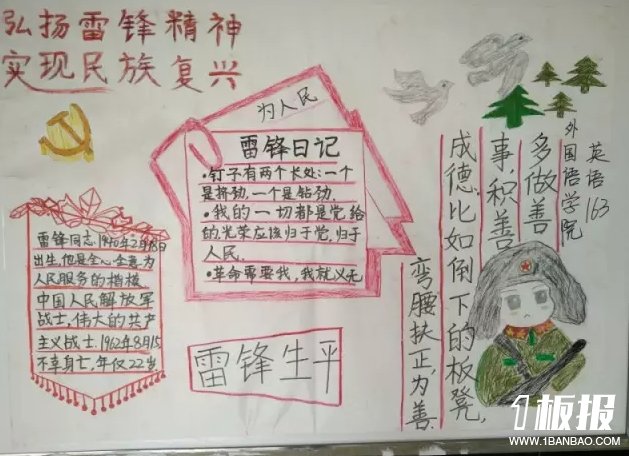 弘扬雷锋精神
实现民族复兴
为人民
雷锋日记
·钉子有两个长处:一个
是挤劲,一个是钻劲.
·我的一切都是党给
的,光荣应该归于党,归于
人民.
·革命需要我,我就义无
雷锋同志.1940年2月18日
出生,他是全心全意为
人民服务的楷模
中国人民解放军
战士,伟大的共产
主义战士.1962年8月15
不幸身亡,年仅22岁
雷锋生平
英语163
外国语学院
多做善
事,积善
成德.比如倒下的板凳,
弯腰扶正,为善.
1板报
WWW.1BANBAO.COM